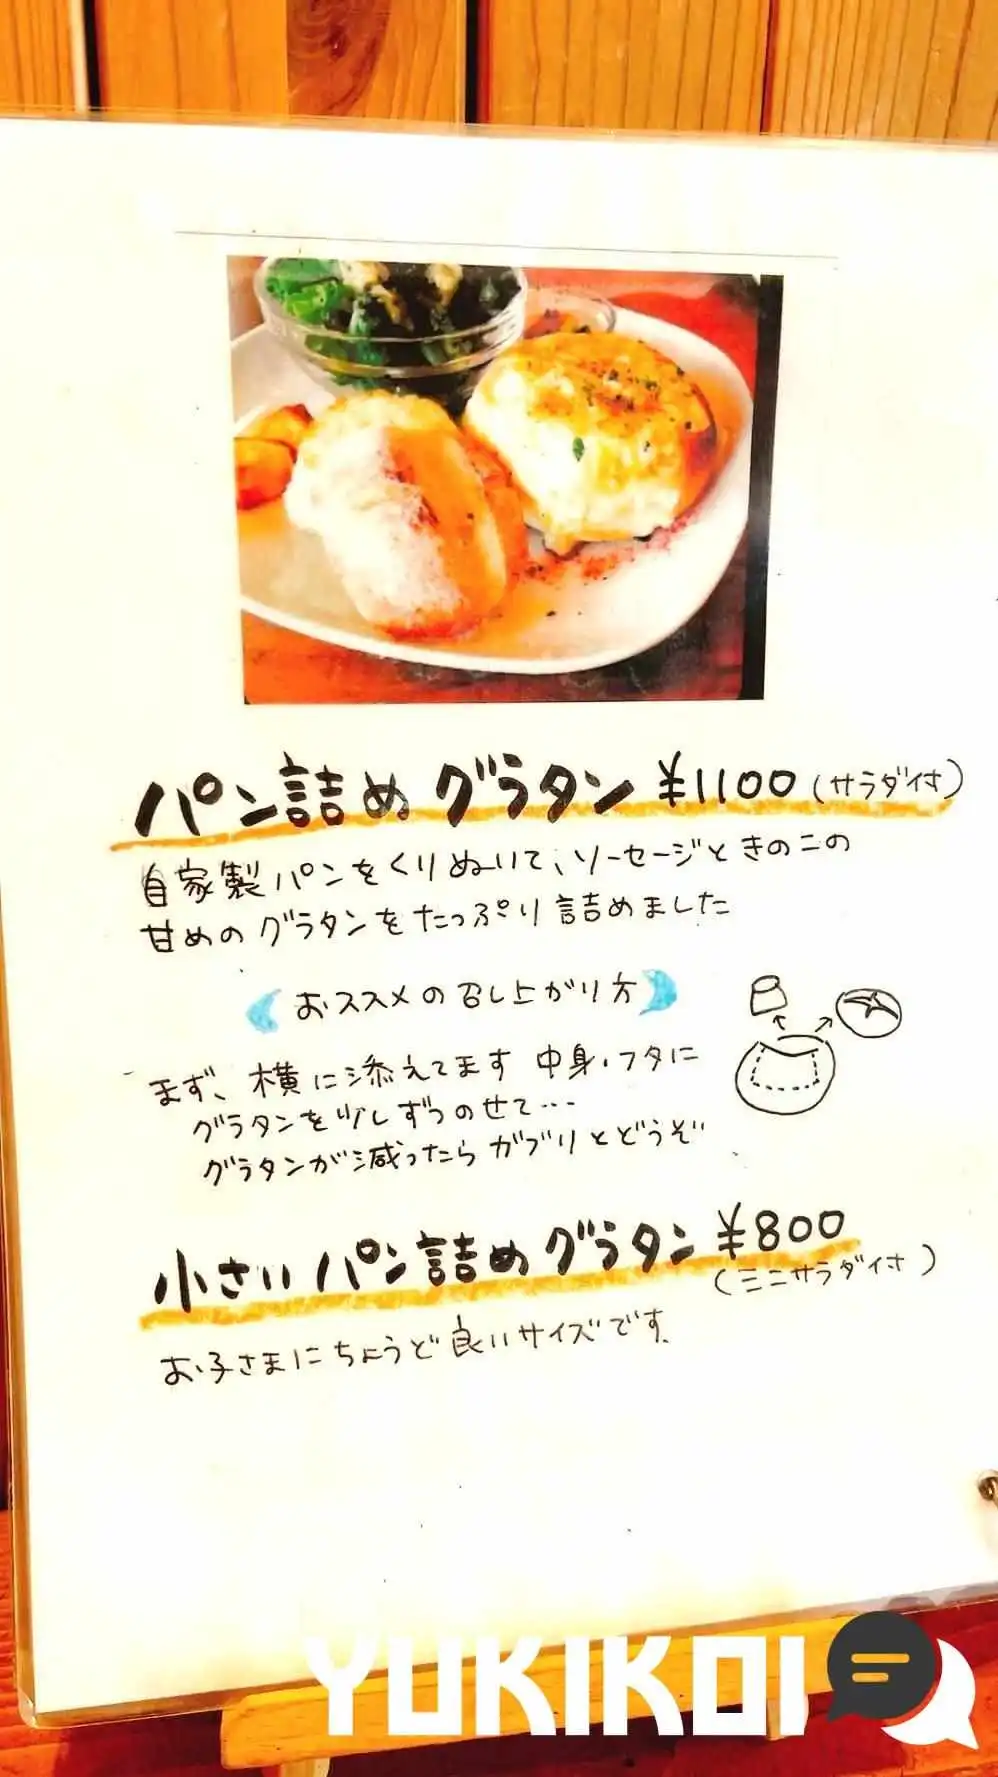 パン詰めグラタン ¥1100(サラダ付)
自家製パンをくりぬいて、ソーセージときのこの
甘めのグラタンをたっぷり詰めました
おススメの召し上がり方
まず、横に添えてます 中身・フタに
グラタンを少しずつのせて…
グラタンが減ったらガブリとどうぞ
小さいパン詰めグラタン ¥800
(ミニサラダ付)
お子さまにちょうど良いサイズです。
YUKIKOI